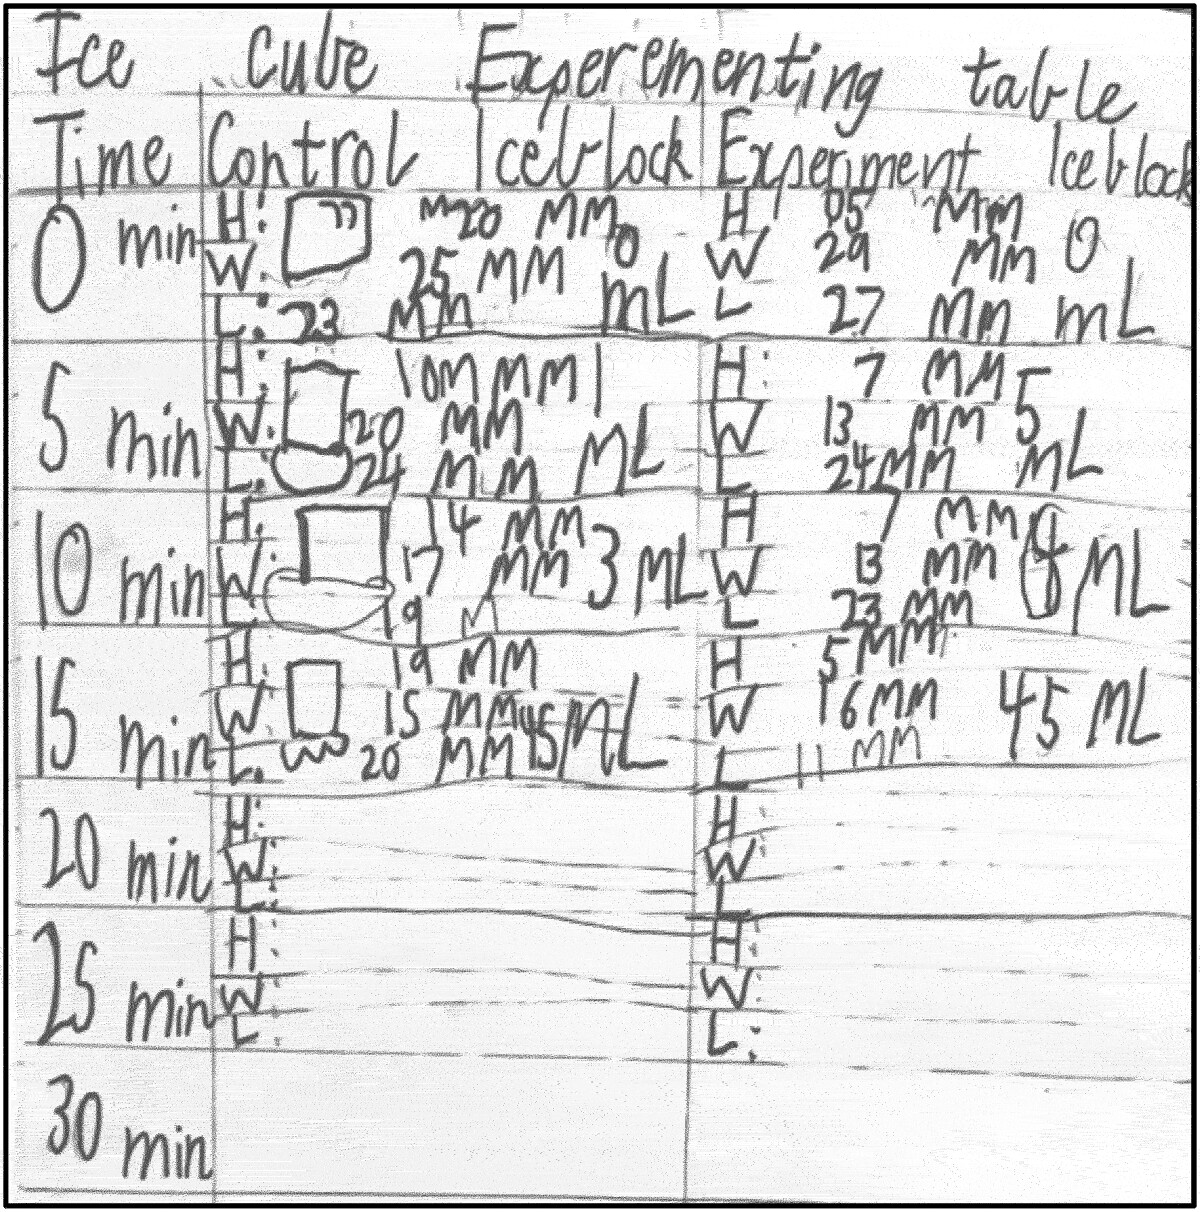 Ice cube Experementing table
Time Control Iceblock Experiment Iceblock
0 min H: 20 MM W: 25 MM L: 23 MM 0 mL H 05 MM W 29 MM L 27 MM 0 mL
5 min H: 10 MM W: 20 MM L: 24 MM 1 ML H: 7 MM W 13 MM L 24 MM 5 ML
10 min H: 14 MM W: 17 MM L 19 M 3 ML H 7 MM W 13 MM L 23 MM ML
15 min H: 19 MM W 15 MM L: 20 MM 45 ML H 5 MM W 16 MM L 11 MM 45 ML
20 min H: W L: H W: L
25 min H: W: L: H: W: L:
30 min